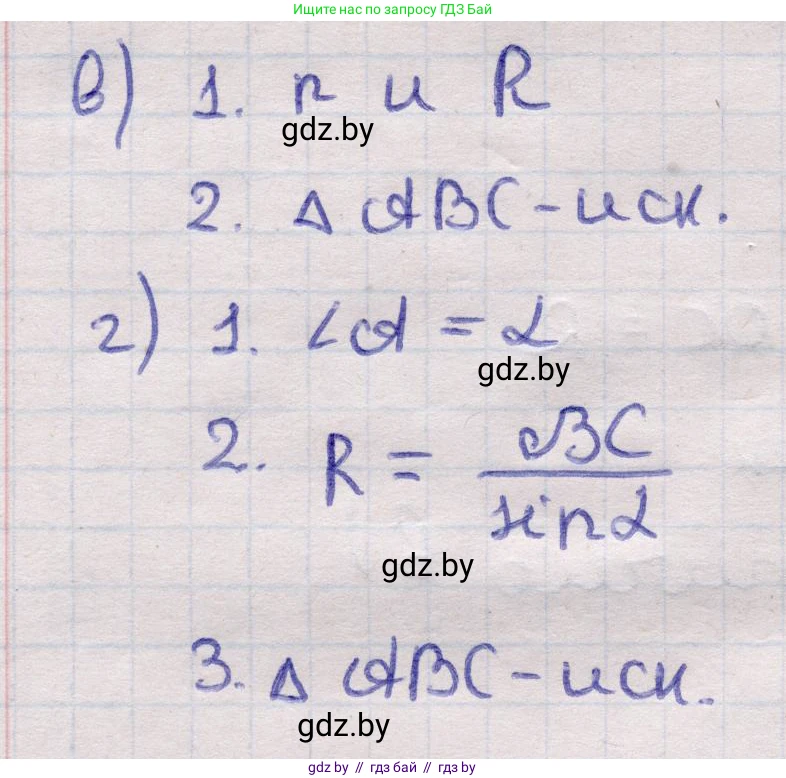 Ищите нас по запросу ГДЗ Бай
в) 1. r и R
gdz.by
2. Δ ABC - иск.
г) 1. ∠A = α
gdz.by
2. R = BC / sin α
gdz.by
3. Δ ABC - иск.
gdz.by
gdz.by // гдз бай // гдз by